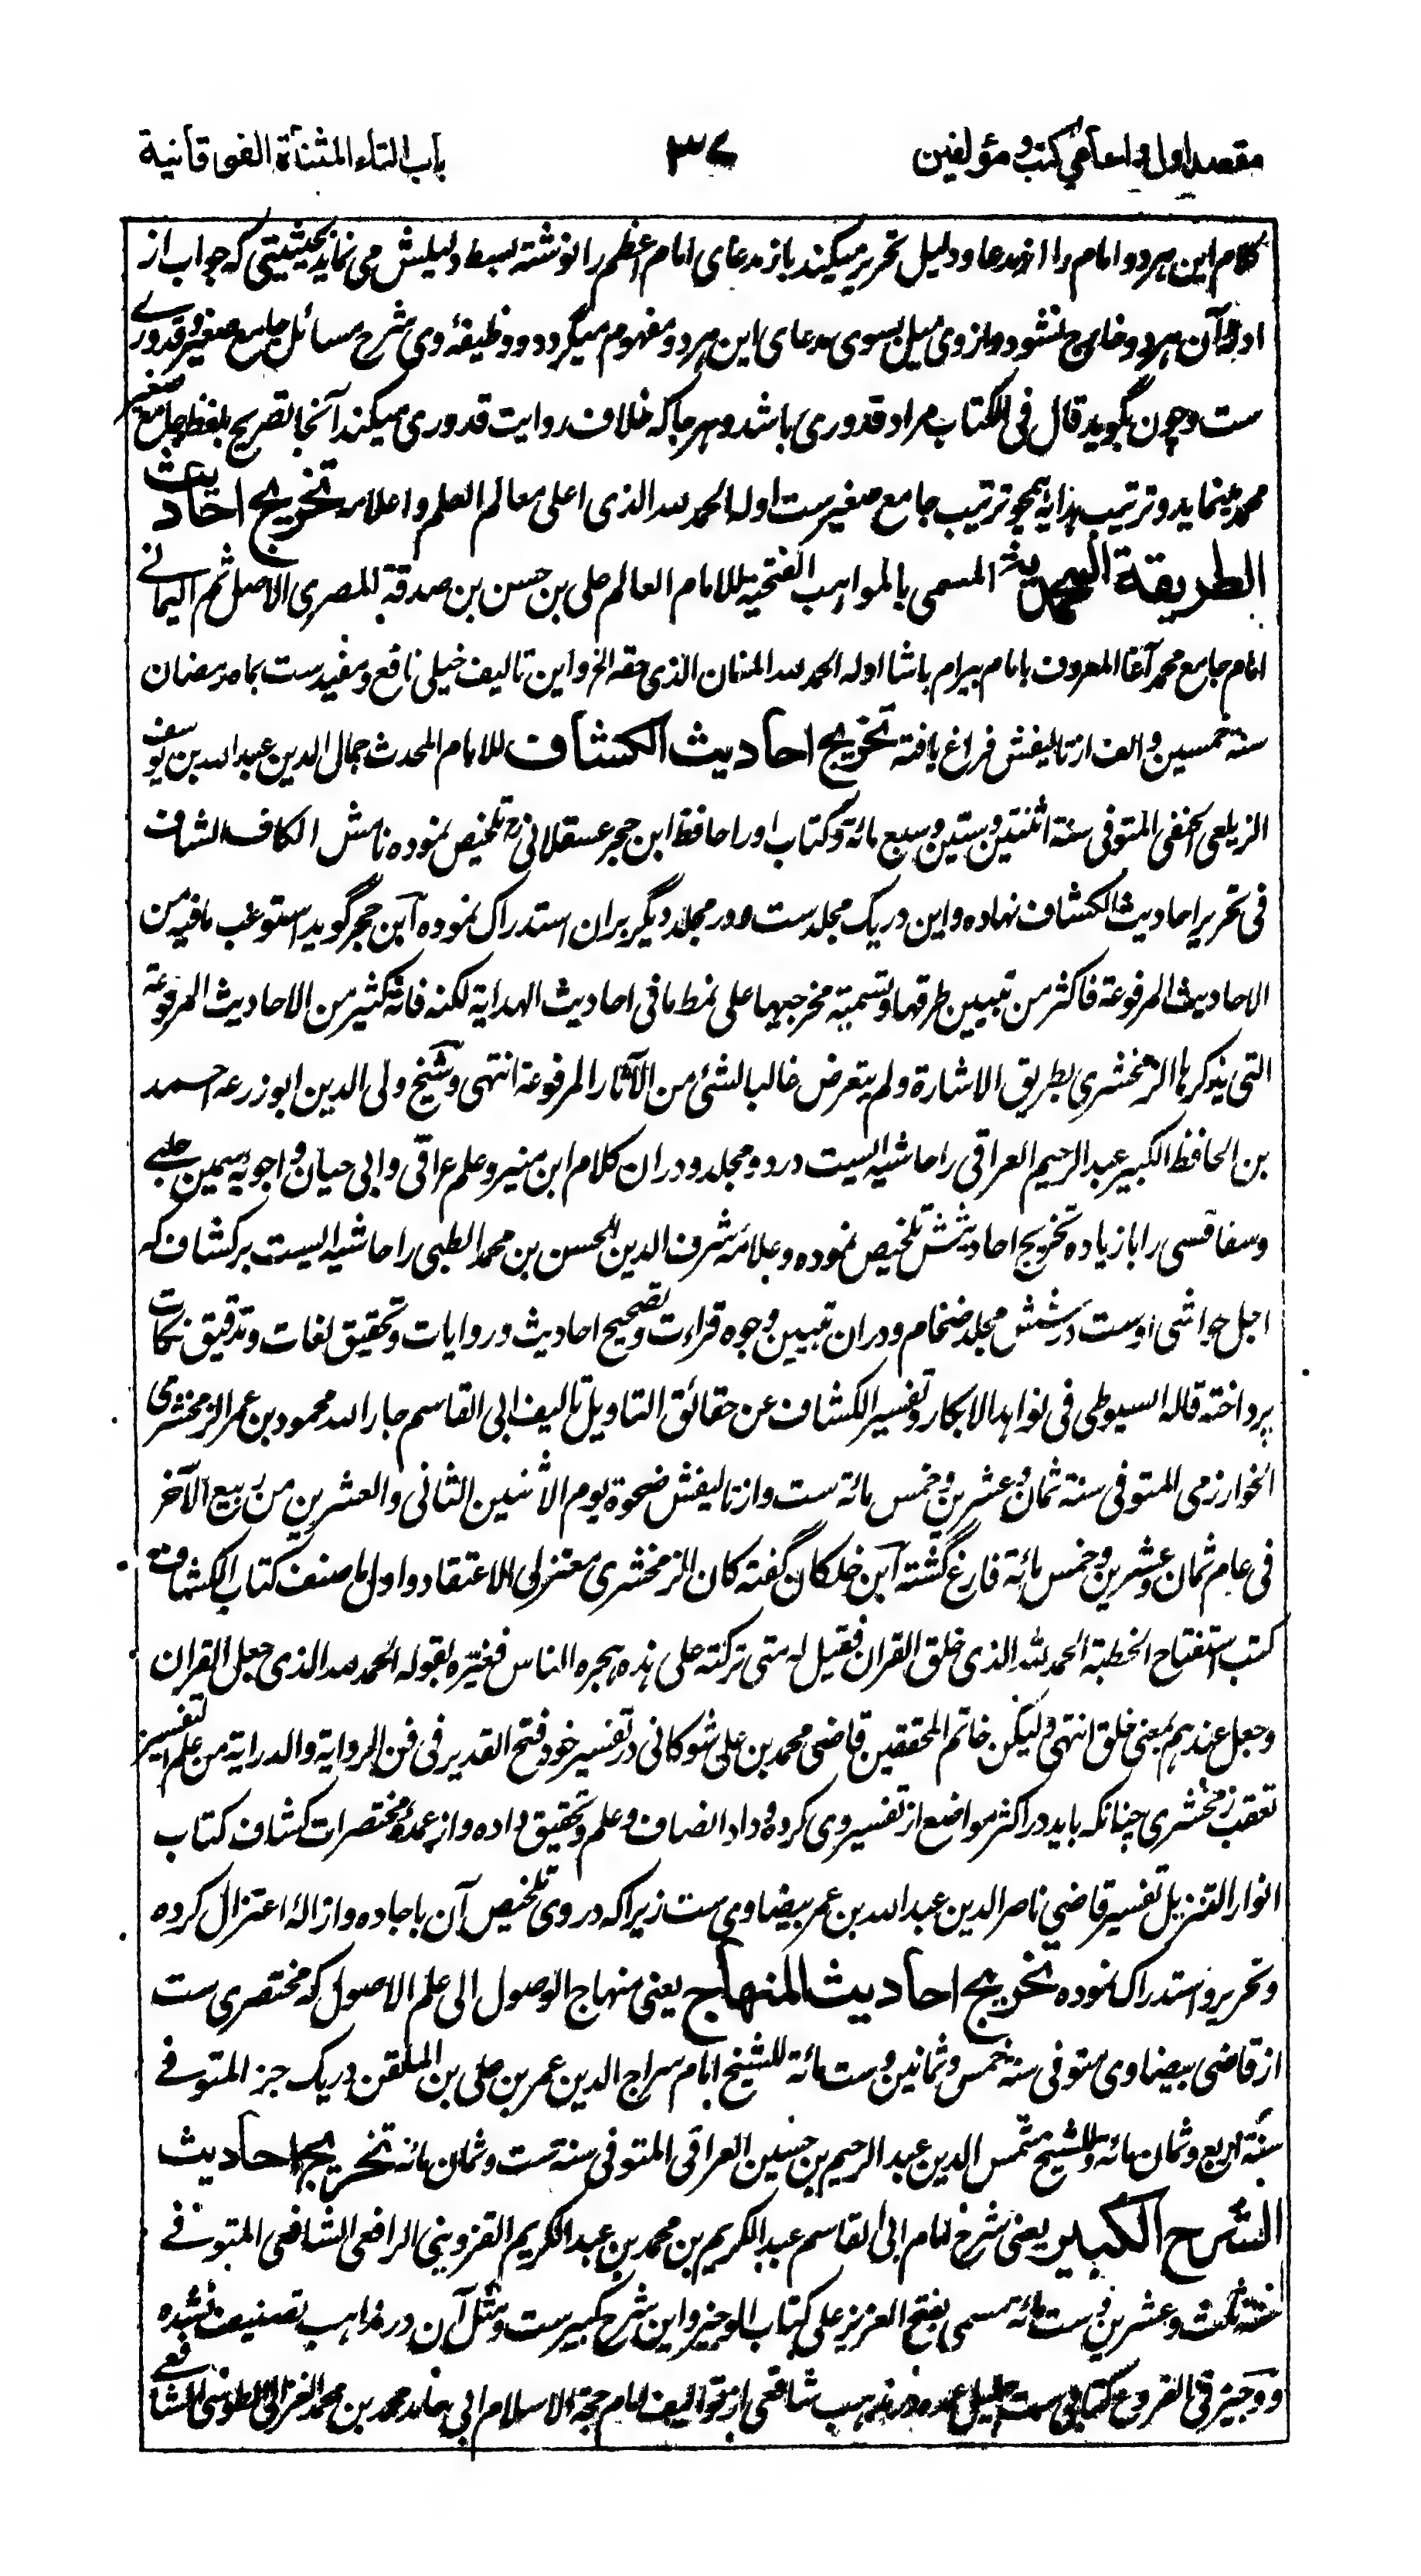 مقصد اول در اسامی کتب و مؤلفین
۳۷
باب التاء المثناة الفوقانية
کلام این هردو امام را از مدعا و دلیل تحریر میکند باز مدعای امام اعظم را نوشته بسط دلیلش می نماید بحیثیتی که جواب از
ادلهٔ آن هردو خارج نشود و ازوی میل بسوی مدعای این هردو مفهوم میگردد و وظیفهٔ وی شرح مسائل جامع صغیر و قدوری
ست و چون بگوید قال فی الکتاب مراد قدوری باشد و هرجا که خلاف روایت قدوری میکند آنجا تصریح بلفظ جامع صغیر
محمد مینماید و ترتیب هدایه همچو ترتیب جامع صغیر ست اوله الحمد لله الذی اعلی معالم العلم و اعلامه تخریج احادیث
الطریقة المحمدیة المسمی بالمواهب الفتحیة للامام العالم علی بن حسن بن صدقة المصری الاصل ثم الیمانی
امام جامع محمد آغا المعروف بامام بیرام باشا اوله الحمد لله المنان الذی حقه الخ و این تالیف خیلی نافع و مفید ست بماه رمضان
سنة خمسین و الف از تالیفش فراغ یافته تخریج احادیث الکشاف للامام المحدث جمال الدین عبدالله بن یوسف
الزیلعی الحنفی المتوفی سنة اثنتین و ستین و سبع مائة و کتاب او را حافظ ابن حجر عسقلانی رح تلخیص نموده نامش الکاف الشاف
فی تحریر احادیث الکشاف نهاده و این در یک مجلد ست و در مجلد دیگر بران استدراک نموده ابن حجر گوید استوعب ما فیه من
الاحادیث المرفوعة فاکثر من تبیین طرقها و تسمیة مخرجیها علی نمط ما فی احادیث الهدایة لکنه فاته کثیر من الاحادیث المرفوعة
التی یذکرها الزمخشری بطریق الاشارة ولم یتعرض غالبا لشئ من الآثار المرفوعة انتهی و شیخ ولی الدین ابو زرعه احمد
بن الحافظ الکبیر عبدالرحیم العراقی را حاشیه ایست در دو مجلد و دران کلام ابن منیر و علم عراقی و ابی حیان و اجوبهٔ سمین حلبی
و سفاقسی را با زیاده تخریج احادیثش تلخیص نموده و علامه شرف الدین الحسن بن محمد الطیبی را حاشیه ایست بر کشاف که
اجل حواشی اوست در شش مجلد ضخام و دران تبیین وجوه قراءت و تصحیح احادیث و روایات و تحقیق لغات و تدقیق نکات
پرداخته قاله السیوطی فی نواهد الابکار و تفسیر الکشاف عن حقائق التاویل تالیف ابی القاسم جار الله محمود بن عمر الزمخشری
الخوارزمی المتوفی سنة ثمان و عشرین و خمس مائة ست و از تالیفش ضحوة یوم الاثنین الثانی والعشرین من ربیع الآخر
فی عام ثمان و عشرین و خمس مائة فارغ گشته ابن خلکان گفته کان الزمخشری معتزلی الاعتقاد و اول ما صنف کتاب الکشاف
کتب استفتاح الخطبة الحمد لله الذی خلق القران فقیل له متی ترکته علی هذه هجره الناس فغیّره بقوله الحمد لله الذی جعل القران
و جعل عندهم بمعنی خلق انتهی ولیکن خاتم المحققین قاضی محمد بن علی شوکانی در تفسیر خود فتح القدیر فی فن الروایة والدرایة من علم التفسیر
تعقب زمخشری چنانکه باید در اکثر مواضع از تفسیر وی کرده و داد انصاف و علم و تحقیق داده و از عمدهٔ مختصرات کشاف کتاب
انوار التنزیل تفسیر قاضی ناصر الدین عبدالله بن عمر بیضاوی ست زیرا که در وی تلخیص آن باجاده و ازالهٔ اعتزال کرده
و تحریر و استدراک نموده تخریج احادیث المنهاج یعنی منهاج الوصول الی علم الاصول که مختصری ست
از قاضی بیضاوی متوفی سنة خمس و ثمانین و ست مائة للشیخ امام سراج الدین عمر بن علی بن الملقن در یک جز المتوفی
سنة اربع و ثمان مائة و للشیخ شمس الدین عبدالرحیم بن حسین العراقی المتوفی سنة ست و ثمان مائة تخریج احادیث
الشرح الکبیر یعنی شرح امام ابی القاسم عبدالکریم بن محمد بن عبدالکریم القزوینی الرافعی الشافعی المتوفی
سنة ثلث و عشرین و ست مائة مسمی بفتح العزیز علی کتاب الوجیز و این شرح کبیر ست و مثل آن در مذاهب تصنیف نشده
و وجیز فی الفروع کتابی ست جلیل عمده در مذهب شافعی از توالیف امام حجة الاسلام ابی حامد محمد بن محمد الغزالی الطوسی الشافعی